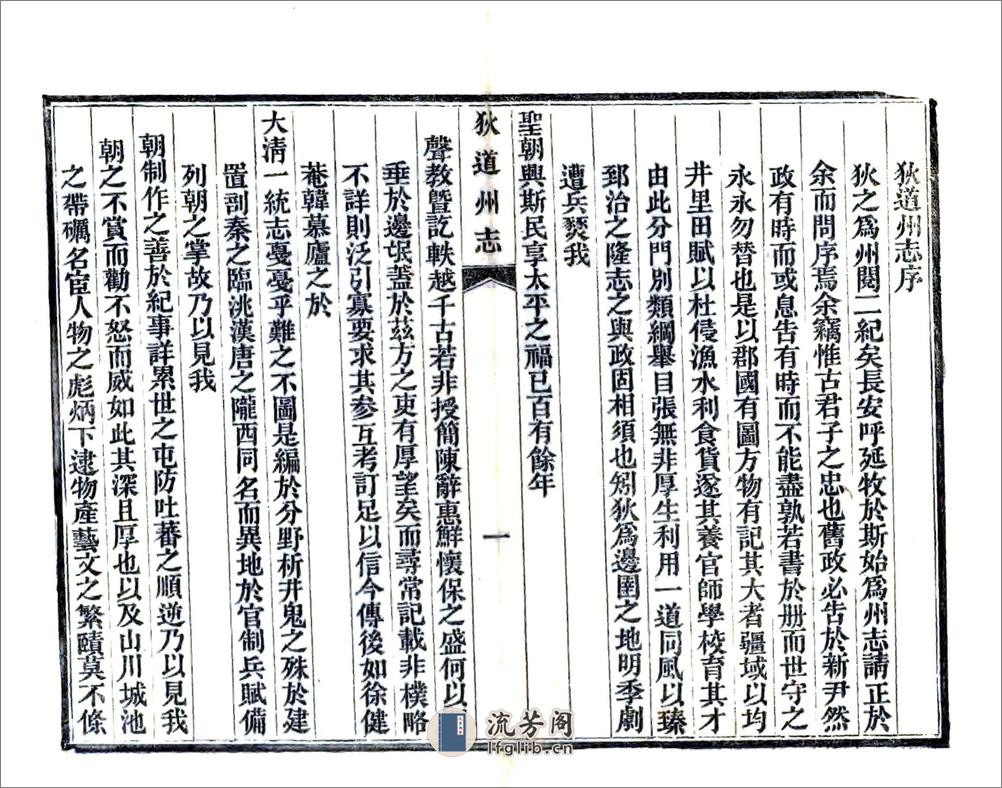 狄道州志序
狄之爲州閱二紀矣長安呼延牧於斯始爲州志請正於
余而問序焉余竊惟古君子之忠也舊政必告於新尹然
政有時而或息告有時而不能盡孰若書於册而世守之
永永勿替也是以郡國有圖方物有記其大者疆域以均
井里田賦以杜侵漁水利食貨遂其養官師學校育其才
由此分門別類綱舉目張無非厚生利用一道同風以臻
郅治之隆志之與政固相須也矧狄爲邊圉之地明季劇
遭兵燹我
聖朝興斯民享太平之福已百有餘年
狄道州志
一
聲教曁訖軼越千古若非授簡陳辭惠鮮懷保之盛何以
垂於邊氓蓋於茲方之吏有厚望矣而尋常記載非樸略
不詳則泛引寡要求其參互考訂足以信今傳後如徐健
菴韓慕廬之於
大清一統志戞戞乎難之不圖是編於分野析井鬼之殊於建
置剖秦之臨洮漢唐之隴西同名而異地於官制兵賦備
列朝之掌故乃以見我
朝制作之善於紀事詳累世之屯防吐蕃之順逆乃以見我
朝之不賞而勸不怒而威如此其深且厚也以及山川城池
之帶礪名宦人物之彪炳下逮物產藝文之繁賾莫不條
流芳阁
lfglib.cn